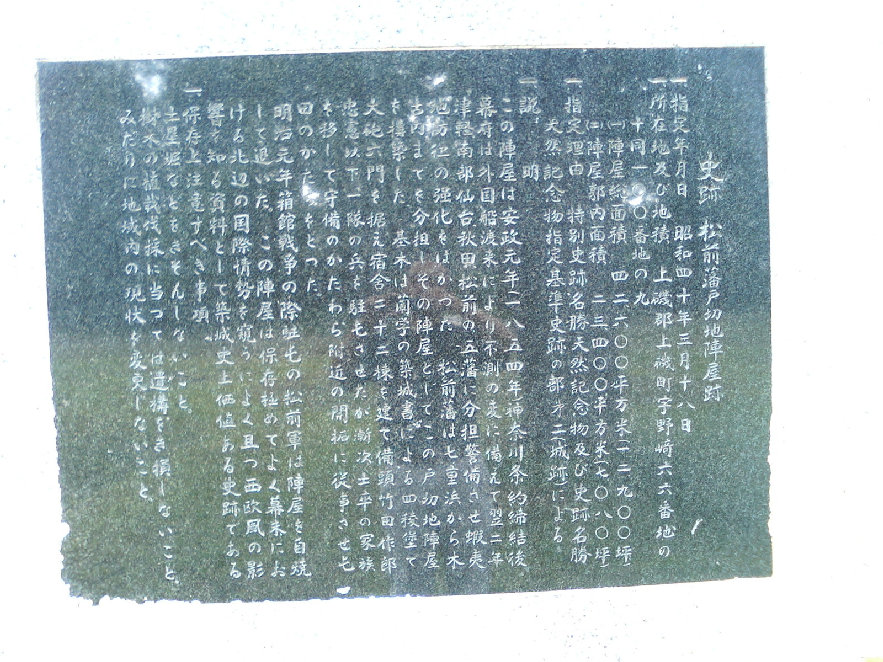 史跡 松前藩戸切地陣屋跡
一 指定年月日 昭和四十年三月十八日
一 所在地及び地積 上磯郡上磯町字野崎六六番地の
十同一〇〇番地の九
(一)陣屋総面積 四二六〇〇平方米(一二九〇〇坪)
(二)陣屋郭内面積 二三四〇〇平方米(七〇八〇坪)
一 指定理由 特別史跡名勝天然記念物及び史跡名勝
天然記念物指定基準史跡の部オ二(城跡)による。
一 説 明
この陣屋は安政元年(一八五四年神奈川条約締結後
幕府は外国船渡来により不測の変に備えて翌二年
津軽南部仙台秋田松前の五藩に分担警備させ蝦夷
地防衛の強化をはかった 松前藩は七重浜から木
古内までを分担しその陣屋としてこの戸切地陣屋
を構築した 基本は蘭学の築城書による四稜堡で
大砲六門を据え宿舎二十二棟を建て備頭竹田作郎
忠憲以下一隊の兵を駐屯させたが漸次士卒の家族
を移して守備のかたわら附近の開拓に従事させ屯
田のかたちをとった
明治元年箱館戦争の際駐屯の松前軍は陣屋を自焼
して退いた。この陣屋は保存極めてよく幕末にお
ける北辺の国際情勢を窺うによく且つ西欧風の影
響を知る資料として築城史上価値ある史跡である
一 保存上注意すべき事項、
土塁堀などをきそんしないこと。
樹木の植栽伐採に当っては遺構をき損しないこと、
みだりに地域内の現状を変更しないこと、